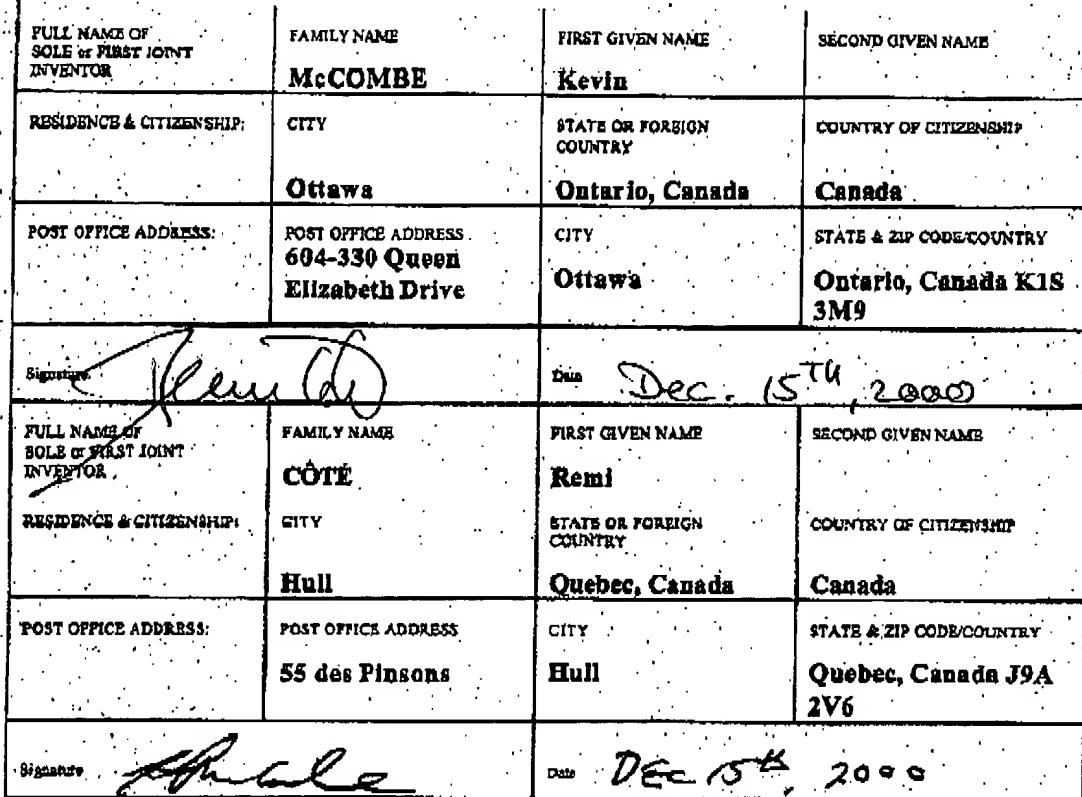 FULL NAME OF SOLE or FIRST JOINT INVENTOR
FAMILY NAME
McCOMBE
FIRST GIVEN NAME
Kevin
SECOND GIVEN NAME
RESIDENCE & CITIZENSHIP:
CITY
Ottawa
STATE OR FOREIGN COUNTRY
Ontario, Canada
COUNTRY OF CITIZENSHIP
Canada
POST OFFICE ADDRESS:
POST OFFICE ADDRESS
604-330 Queen
Elizabeth Drive
CITY
Ottawa
STATE & ZIP CODE/COUNTRY
Ontario, Canada K1S
3M9
Signature
Date Dec. 15TH, 2000
FULL NAME OF
SOLE or FIRST JOINT
INVENTOR
FAMILY NAME
CÔTÉ
FIRST GIVEN NAME
Remi
SECOND GIVEN NAME
RESIDENCE & CITIZENSHIP:
CITY
Hull
STATE OR FOREIGN
COUNTRY
Quebec, Canada
COUNTRY OF CITIZENSHIP
Canada
POST OFFICE ADDRESS:
POST OFFICE ADDRESS
55 des Pinsons
CITY
Hull
STATE & ZIP CODE/COUNTRY
Quebec, Canada J9A
2V6
Signature
Date DEC 15th, 2000